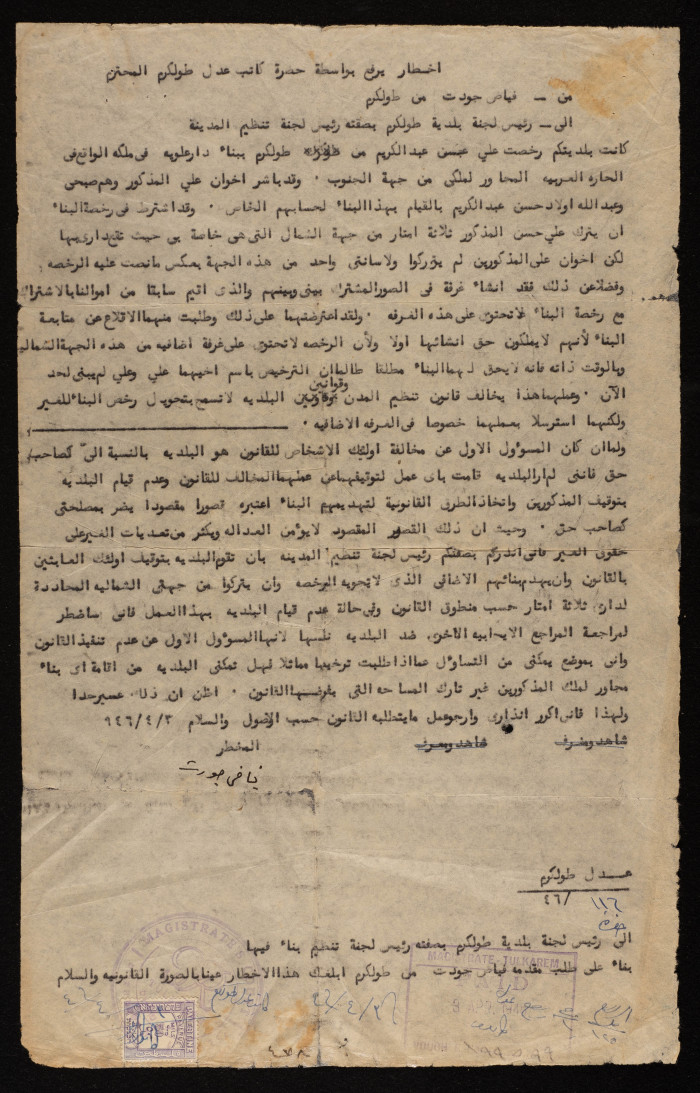 اخطار يرفع بواسطة حضرة كاتب عدل طولكرم المحترم
من — فياض جودت من طولكرم
الى — رئيس لجنة بلدية طولكرم بصفته رئيس لجنة تنظيم المدينة
كانت بلديتكم رخصت علي حسن عبدالكريم من طولكرم ببناء دار علويه في ملكه الواقع في
الحاره الغربيه المجاور لملكي من جهة الجنوب ٠ وقد باشر اخوان علي المذكور وهم صبحي
وعبدالله اولاد حسن عبدالكريم بالقيام بهذا البناء لحسابهم الخاص ٠ وقد اشترط في رخصة البناء
ان يترك علي حسن المذكور ثلاثة امتار من جهة الشمال التي هي خاصة بي حيث تقع داري بها
لكن اخوان علي المذكورين لم يتركوا ولا سانتي واحد من هذه الجهة بعكس ما نصت عليه الرخصه
وفضلا عن ذلك فقد انشاء غرفة في الصور المشترك بيني وبينهم والذي اقيم سابقا من اموالنا بالاشتراك
مع رخصة البناء لا تحتوي على هذه الغرفه ٠ ولقد اعترضتهما على ذلك وطلبت منهما الاقلاع عن متابعة
البناء لأنهم لا يملكون حق انشائها اولا ولأن الرخصه لا تحتوي على غرفة اضافيه من هذه الجهة الشماليه
وبالوقت ذاته فانه لا يحق لهما البناء مطلقا طالما ان الترخيص باسم اخيهما علي وعلي لم يبني لحد
الآن ٠ وعملهما هذا يخالف قانون تنظيم المدن وقوانين البلديه لا تسمح بتحويل رخص البناء للغير
ولكنهما استرسلا بعملهما خصوصا في الغرفه الاضافيه ٠
ولما ان كان المسؤول الاول عن مخالفة اولئك الاشخاص للقانون هو البلديه بالنسبة اليّ كصاحب
حق فانني لم ار البلديه قامت باي عمل لتوقيفهما عن عملهما المخالف للقانون وعدم قيام البلديه
بتوقيف المذكورين واتخاذ الطرق القانونية لتهديمهم البناء اعتبره تصورا مقصودا يضر بمصلحتي
كصاحب حق ٠ وحيث ان ذلك القصور المقصود لا يؤمن العداله ويكثر من تعديات الغير على
حقوق الغير فاني انذركم بصفتكم رئيس لجنة تنظيم المدينه بان تقوم البلديه بتوقيف اولئك العابثين
بالقانون وان يهدم بنائهم الاضافي الذي لا تحويه الرخصه وان يتركوا من جهتي الشماليه المحاددة
لداري ثلاثة امتار حسب منطوق القانون وفي حالة عدم قيام البلديه بهذا العمل فاني ساضطر
لمراجعة المراجع الايجابيه الأخرى ضد البلديه نفسها لانها المسؤول الاول عن عدم تنفيذ القانون
واني بموضع يمكنني من التساؤل عما اذا طلبت ترخيصا مماثلا فهل تمكني البلديه من اقامة اي بناء
مجاور لملك المذكورين غير تارك المساحه التي يفرضها القانون ٠ اظن ان ذلك عسير جدا
ولهذا فاني اكرر انذاري وارجو عمل ما يتطلبه القانون حسب الاصول والسلام ٩٤٦/٤/٣
شاهد ومعرف شاهد ومعرف المخطر
فياض جودت
عدل طولكرم
٤٦/
الى رئيس لجنة بلدية طولكرم بصفته رئيس لجنة تنظيم بناء فيها
بناء على طلب مقدمه فياض جودت من طولكرم ابلغك هذا الاخطار عينا بالصورة القانونيه والسلام
MAGISTRATE
MAGISTRATE TULKAREM
PAID